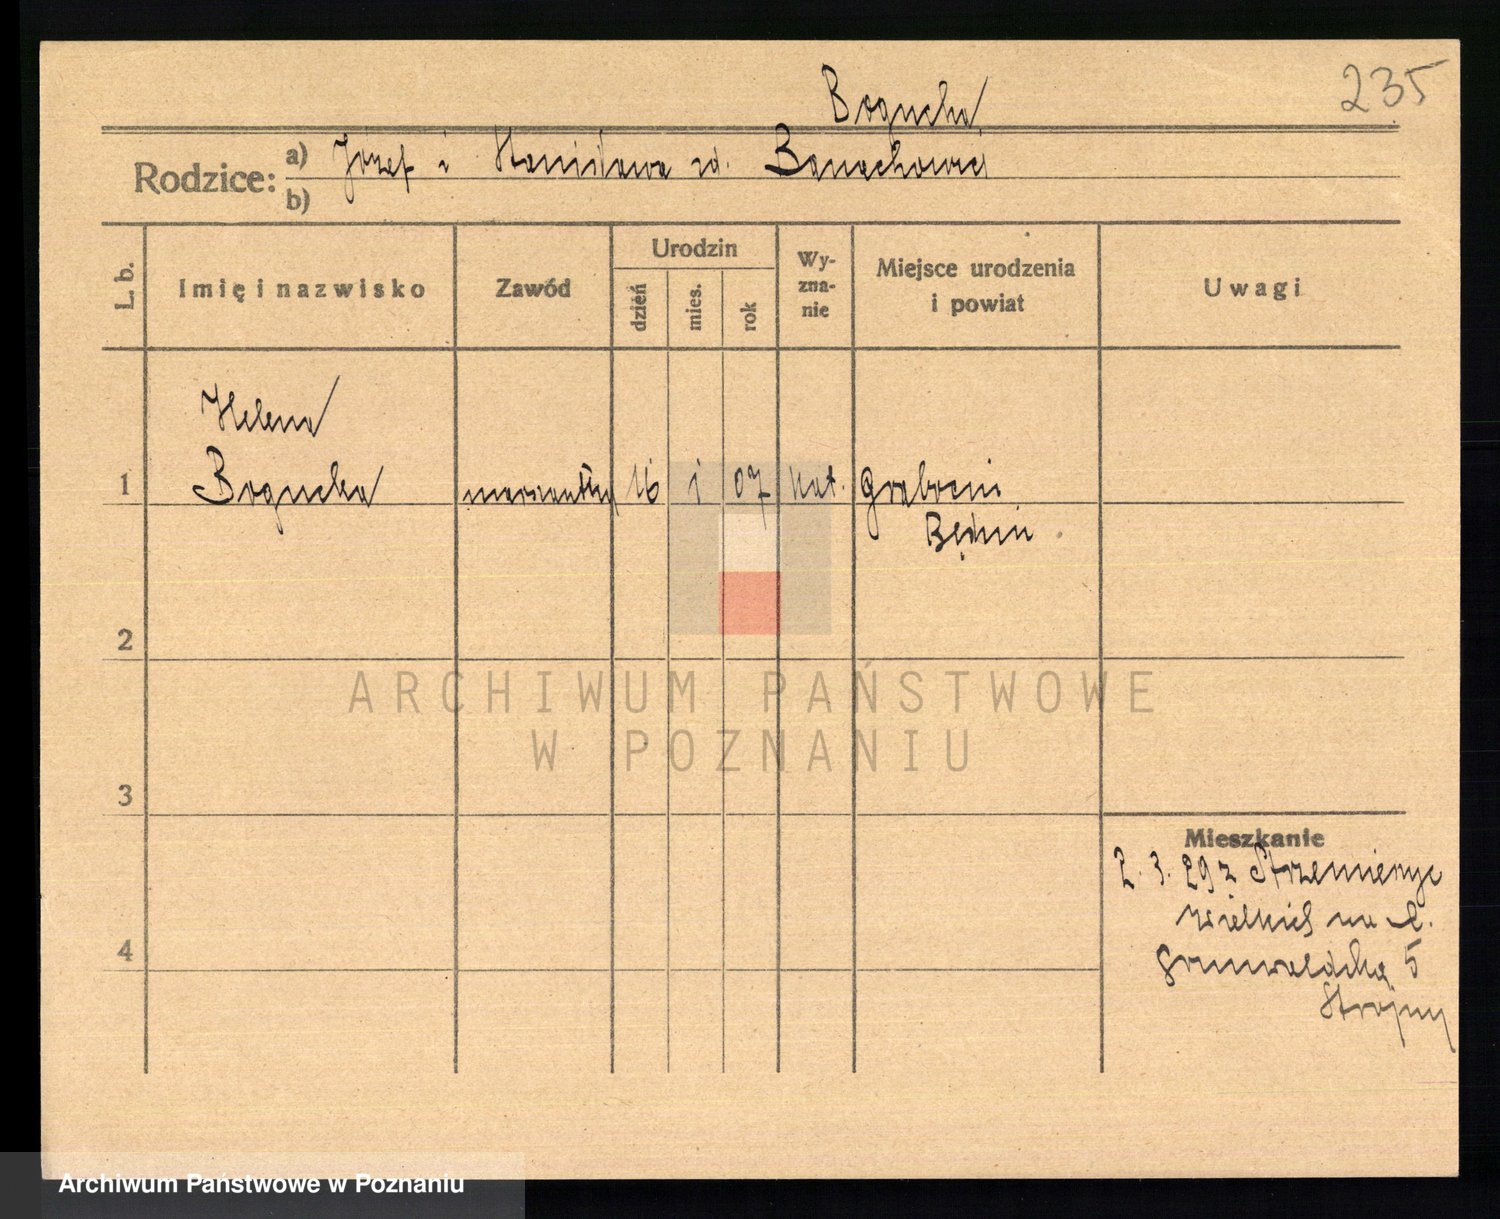 235
Bogucka
Rodzice: a) Józef i Stanisława zd. Banachowicz
b)
L. b. Imię i nazwisko Zawód Urodzin dzień mies. rok Wyznanie Miejsce urodzenia i powiat Uwagi
Helena
1 Bogucka 16 1 07 kat. Grabocin
Będzin
2
3
4
Mieszkanie
2. 3. 29 z Strzemieszyc
Wielkich na
Grunwaldzka 5
ARCHIWUM PAŃSTWOWE
W POZNANIU
Archiwum Państwowe w Poznaniu